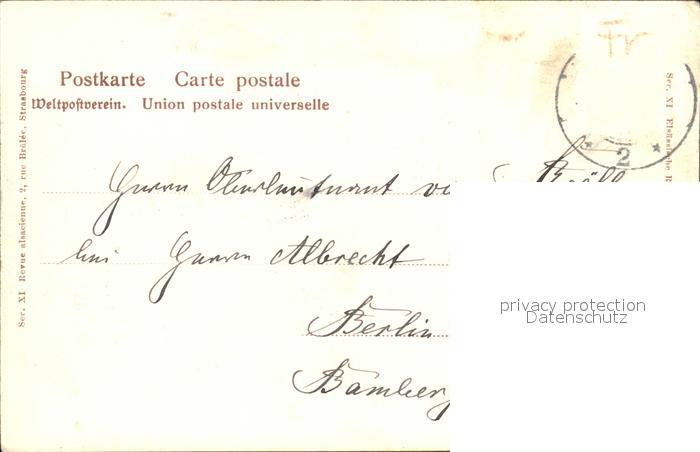 Fr
Postkarte Carte postale
Weltpostverein. Union postale universelle
Ser. XI Revue alsacienne, 2, rue Brûlée, Strasbourg
Ser. XI Elsässische R
* 2 *
Herrn Oberleutnant
bei Herrn Albrecht
Berlin
Bamberg
privacy protection
Datenschutz